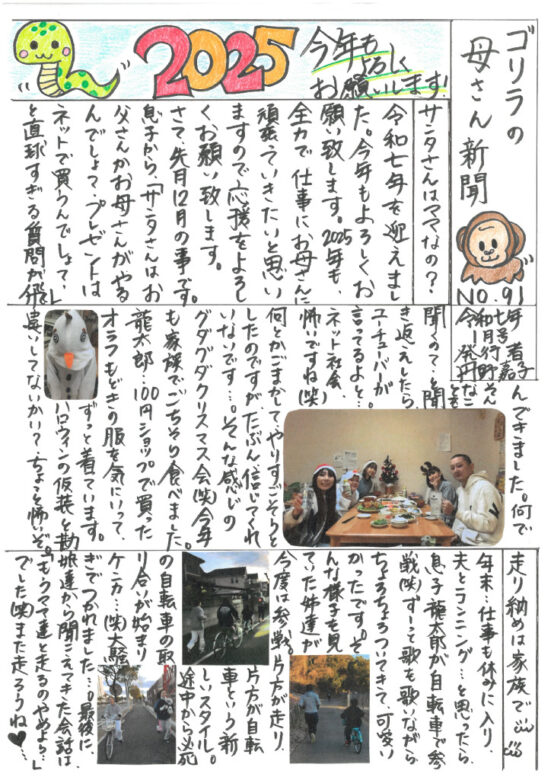 2025
今年も
よろしく
お願いします!
ゴリラの
母さん新聞
NO.91
サンタさんはママなの？
令和七年を迎えまし
た。今年もよろしくお
願い致します。2025年も、
全力で仕事にお母さんに
頑張っていきたいと思い
ますので、応援をよろし
くお願い致します。
さて、先月12月の事です。
息子から、「サンタさんはお
父さんかお母さんがやる
んでしょ？プレゼントは
ネットで買うんでしょ？」
と直球すぎる質問が飛
んできました。何で
聞くの？…と聞
き返えしたら
ユーチューバーが
言ってるよと…
ネット社会、
怖いですね(笑)
何とかごまかしてやりすごそうと
したのですが、たぶん信じてくれ
ないです…。そんな感じの
グダグダクリスマス会(笑)今年
も家族でごちそう食べました。
龍太郎…100円ショップで買った
オラフもどきの服を気にいって、
ずっと着ています。
ハロウィンの仮装と勘
違いしてないかい？ちょっと怖いぞ。
走り納めは家族で
年末…仕事も休みに入り、
夫とランニング…と思ったら
息子龍太郎が自転車で参
戦(笑)ずーっと歌を歌いながら
ちょろちょろついてきて、可愛い
かったです。そ
んな様子を見
てった姉達が
今度は参戦。片方が走り、
片方が自転
車という新
しいスタイル。
途中から必死
の自転車の取
り合いが始まり
ケンカ…(笑)大騒
ぎでつかれました…。最後に、
娘達から聞こえてきた会話は
「もうママ達と走るのやめよう…」
でした(笑)また走ろうね♥